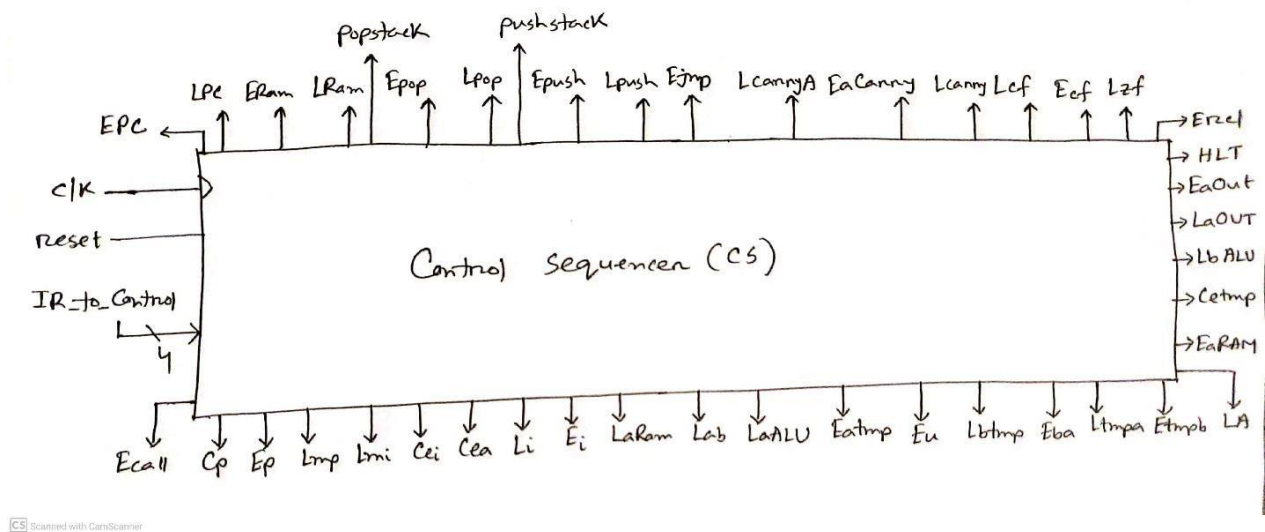 Popstack pushstack
LPC ERam LRam Epop Lpop Epush Lpush Ejmp LcarryA EaCarry Lcarry Lcf Ecf Lzf
EPC
Eret
HLT
clk
EaOut
reset
LaOUT
Control sequencer (CS)
LbALU
IR_to_Control
Cetmp
4
EaRAM
Ecall Cp Ep Lmp Lmi Cei Cea Li Ei LaRam Lab LaALU Eatmp Eu Lbtmp Eba Ltmpa Etmpb LA
CS Scanned with CamScanner